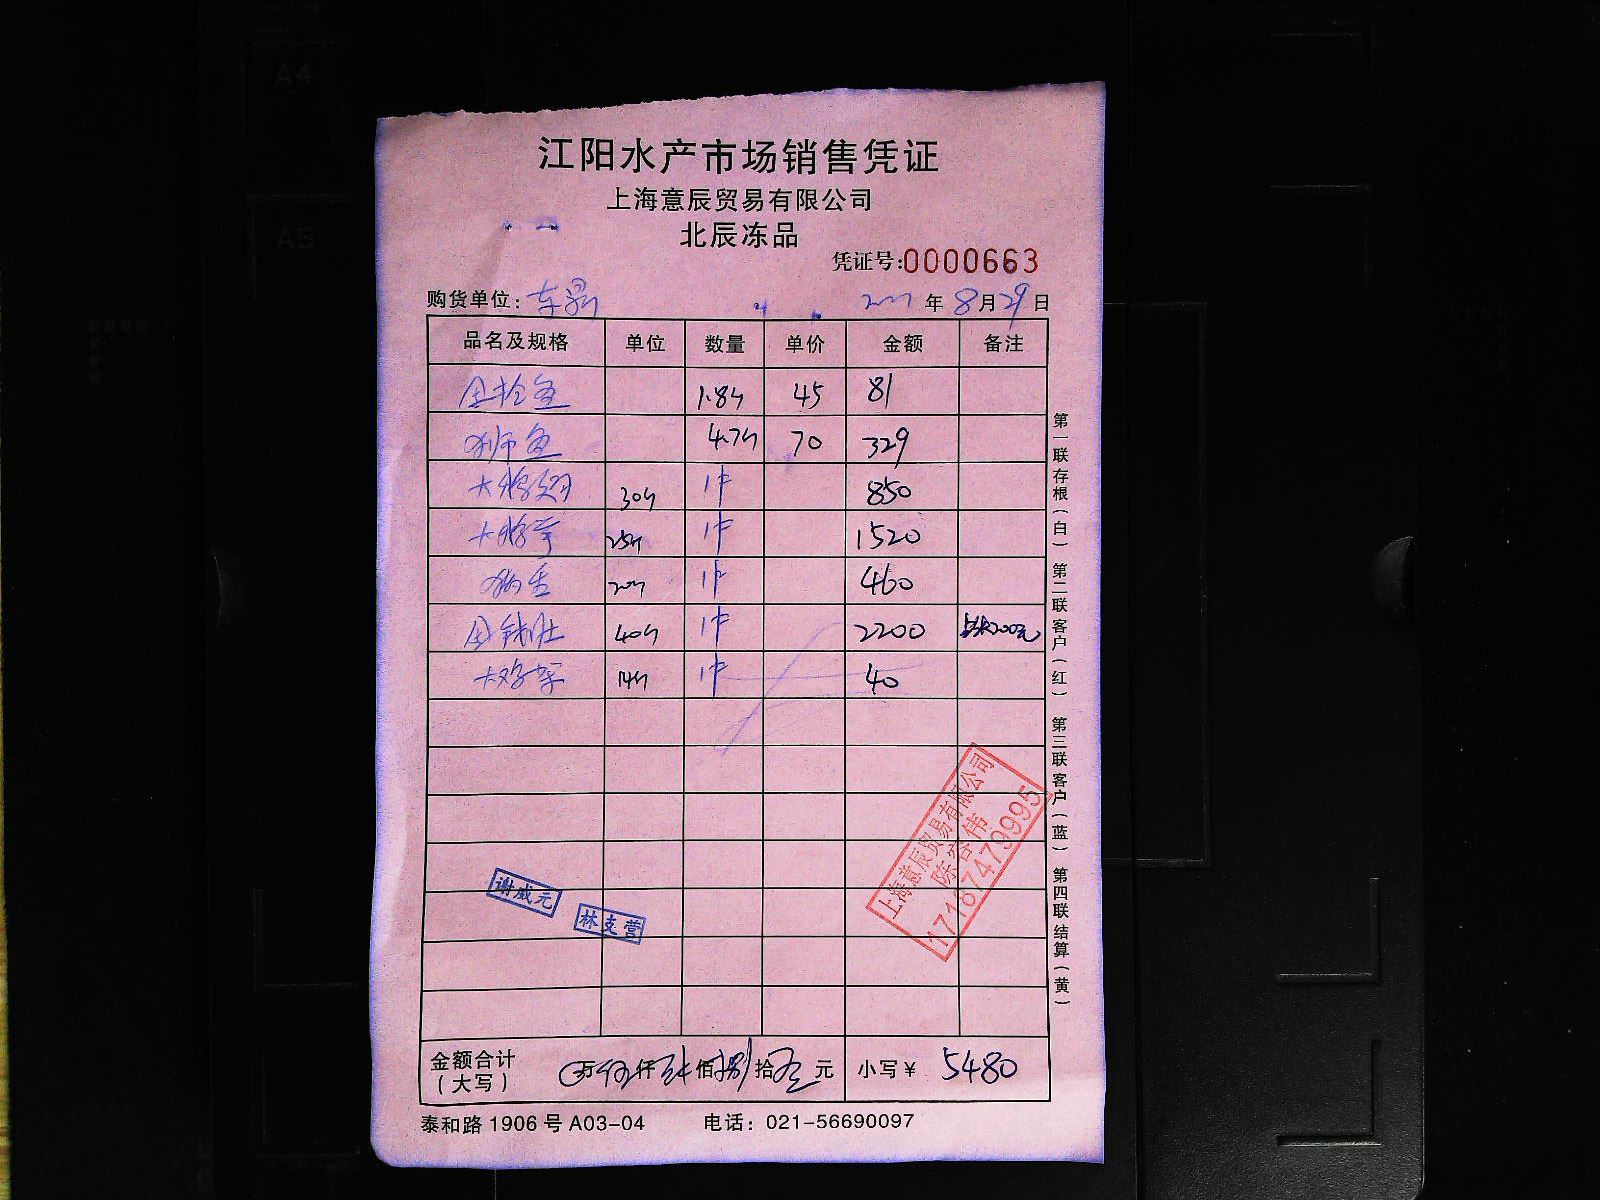 A4
A5
江阳水产市场销售凭证
上海意辰贸易有限公司
北辰冻品
凭证号:0000663
购货单位: 年8月29日
品名及规格 单位 数量 单价 金额 备注
鱼 1.8斤 45 81
狮鱼 4.7斤 70 329
大 30斤 1件 850
大 25斤 1件 1520
20斤 1件 460
40斤 1件 2200
大鸡 14斤 1件 40
谢威元
林支营
上海意辰贸易有限公司
陈容伟
17187479995
金额合计
(大写) 万伍仟肆佰捌拾元 小写¥ 5480
泰和路1906号A03-04 电话：021-56690097
第一联存根(白) 第二联客户(红) 第三联客户(蓝) 第四联结算(黄)